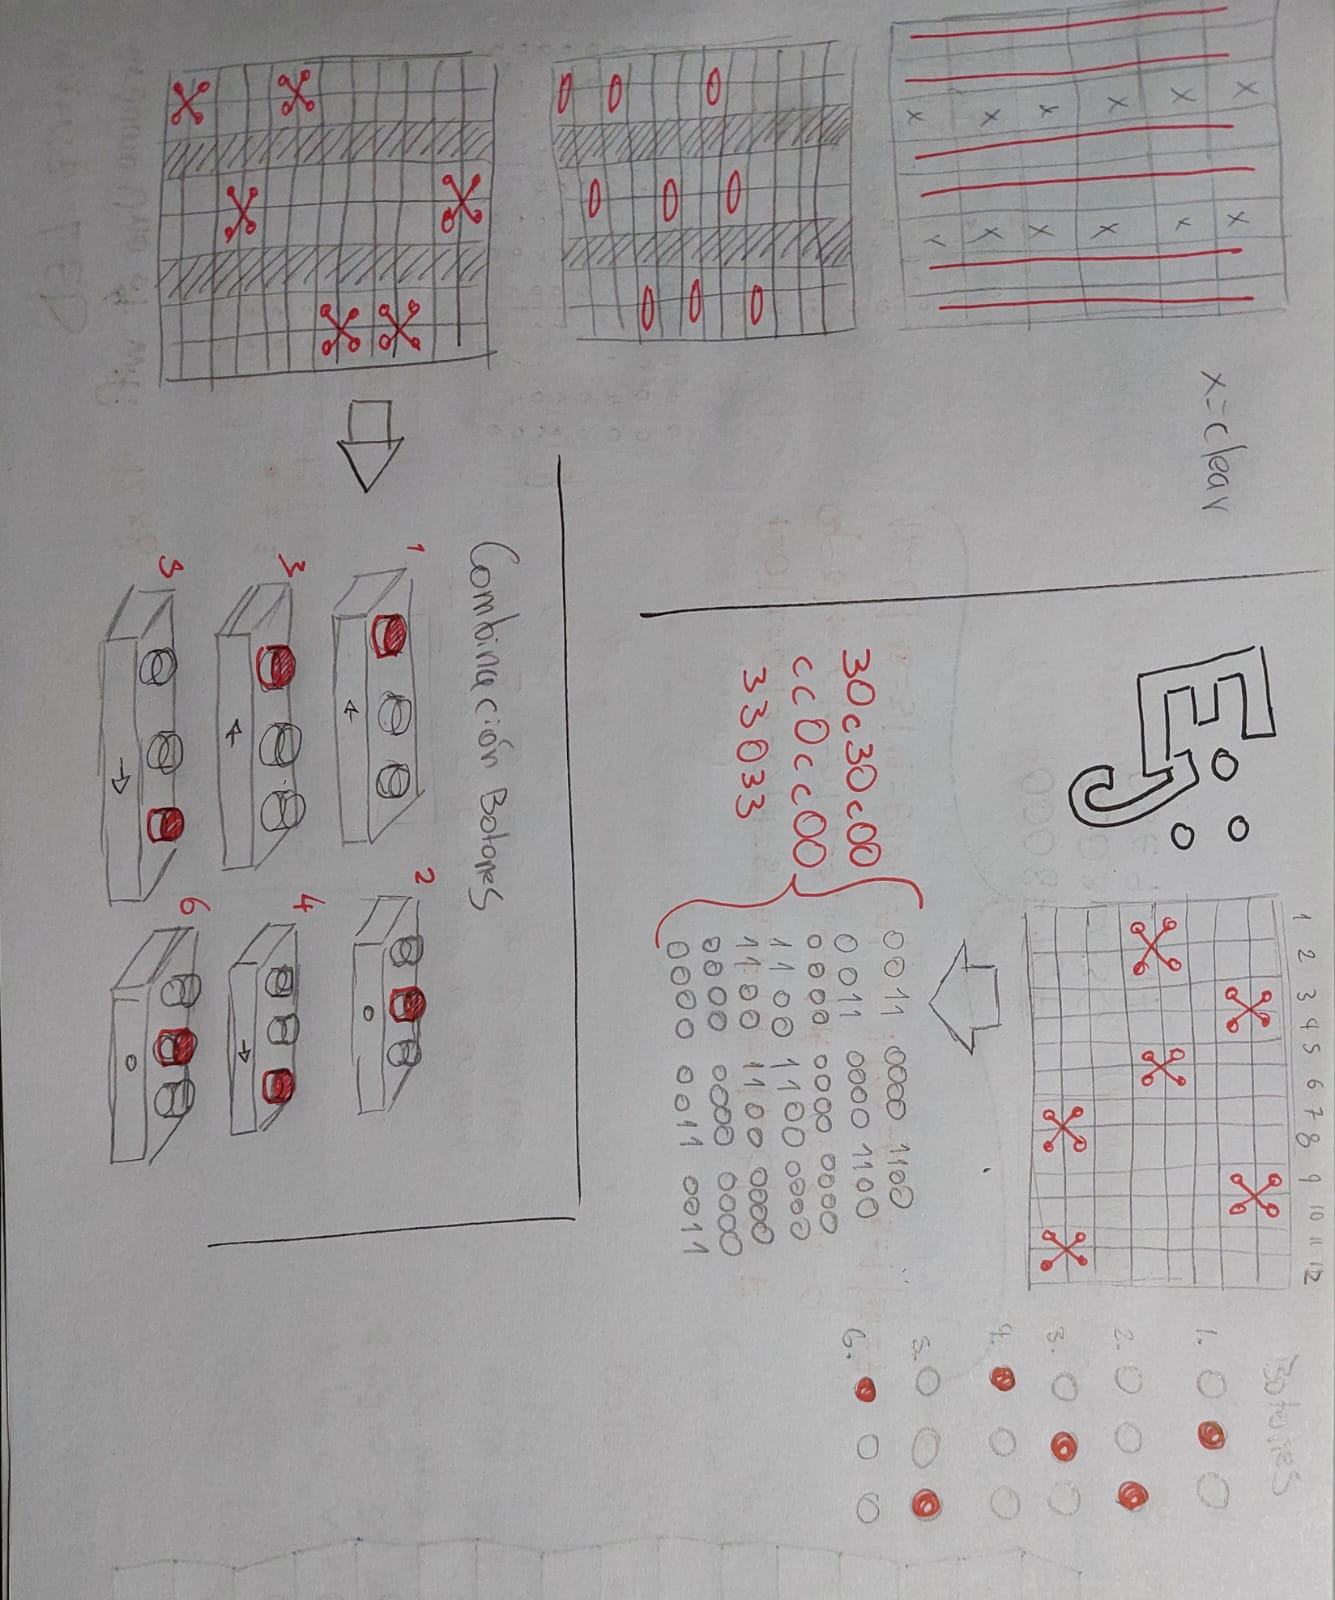 x=clear
Ej:
1 2 3 4 5 6 7 8 9 10 11 12
Botones
1.
2.
3.
4.
5.
6.
30c30c00
cc0cc00
33033
0011 0000 1100
0011 0000 1100
0000 0000 0000
1100 1100 0000
1100 1100 0000
0000 0000 0000
0000 0011 0011
Combinación Botones
1
2
3
4
5
6